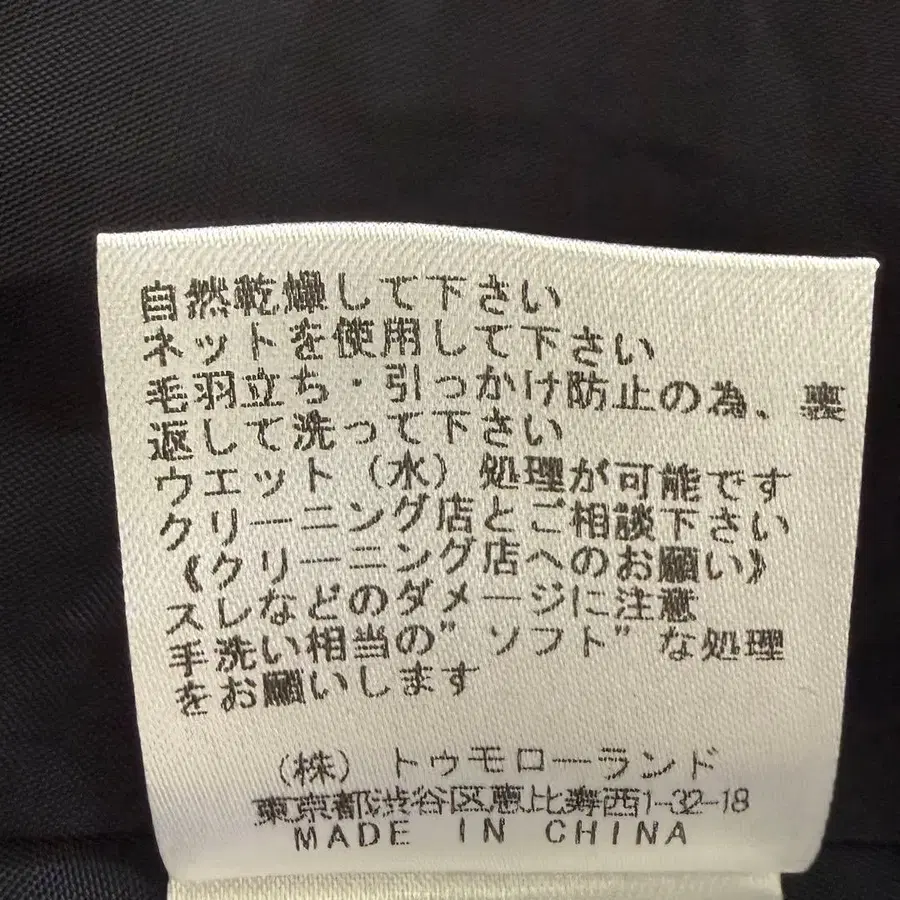 自然乾燥して下さい
ネットを使用して下さい
毛羽立ち・引っかけ防止の為、裏
返して洗って下さい
ウエット（水）処理が可能です
クリーニング店とご相談下さい
《クリーニング店へのお願い》
スレなどのダメージに注意
手洗い相当の”ソフト”な処理
をお願いします
（株）トゥモローランド
東京都渋谷区恵比寿西1-32-18
MADE IN CHINA